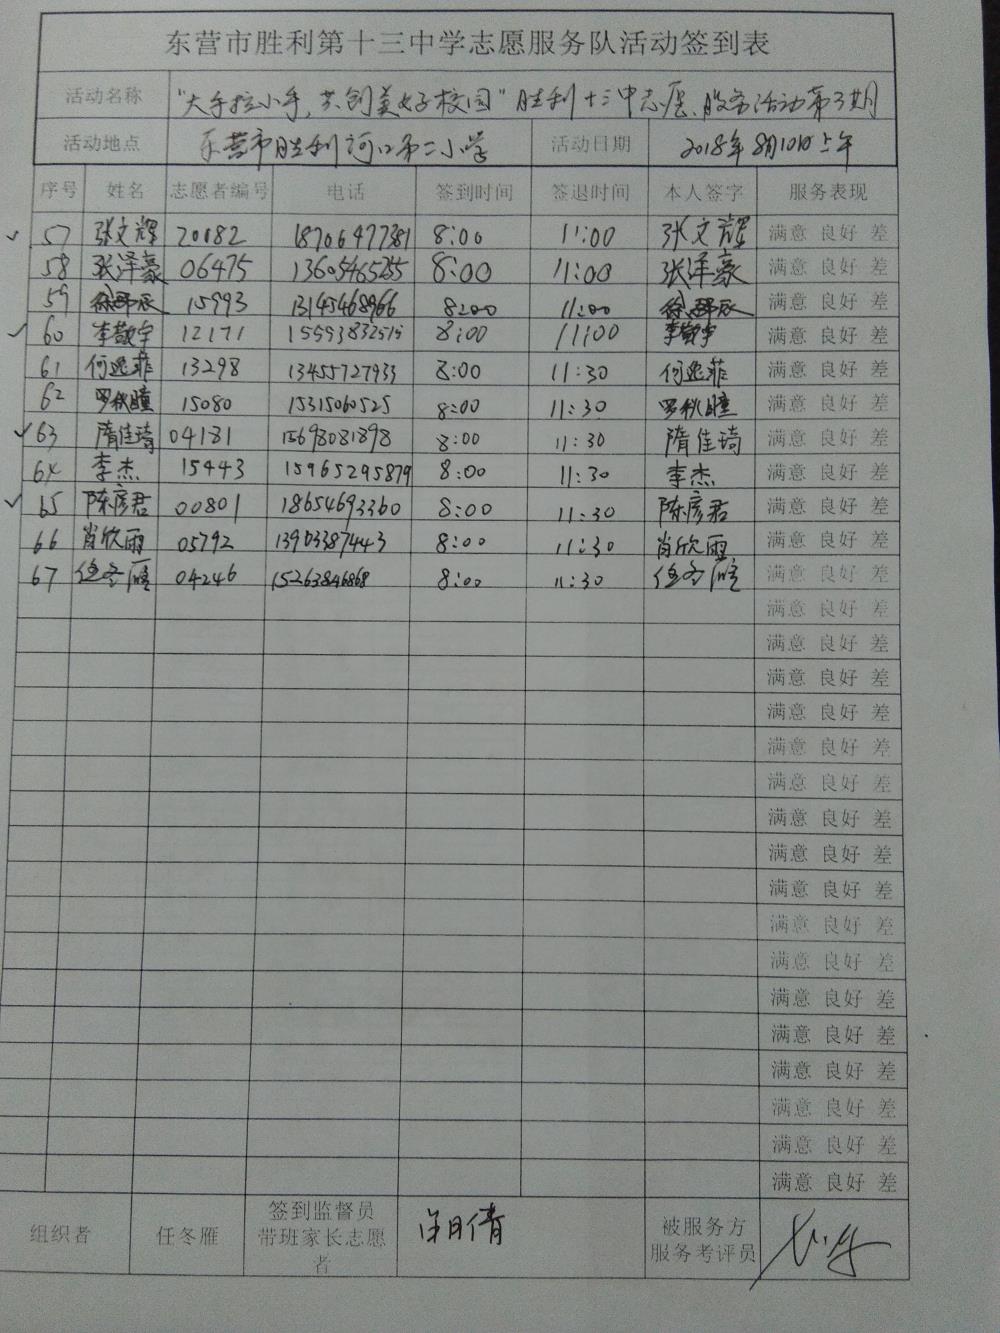 东营市胜利第十三中学志愿服务队活动签到表
活动名称 “大手拉小手，共创美好校园”胜利十三中志愿服务活动第3期
活动地点 东营市胜利河口第二小学 活动日期 2018年8月10日上午
序号 姓名 志愿者编号 电话 签到时间 签退时间 本人签字 服务表现
57 张文辉 20182 18706477381 8:00 11:00 张文辉 满意 良好 差
58 张泽豪 06475 13605465255 8:00 11:00 张泽豪 满意 良好 差
59 15993 13145468966 8:00 11:00 满意 良好 差
60 李敬宇 12171 15593832515 8:00 11:00 李敬宇 满意 良好 差
61 何逸菲 13298 13455727933 8:00 11:30 何逸菲 满意 良好 差
62 罗秋瞳 15080 15315060525 8:00 11:30 罗秋瞳 满意 良好 差
63 隋佳琦 04181 15698081898 8:00 11:30 隋佳琦 满意 良好 差
64 李杰 15443 15965295879 8:00 11:30 李杰 满意 良好 差
65 陈彦君 00801 18654693360 8:00 11:30 陈彦君 满意 良好 差
66 肖欣雨 05792 13963387443 8:00 11:30 肖欣雨 满意 良好 差
67 04246 15263846868 8:00 11:30 满意 良好 差
满意 良好 差
满意 良好 差
满意 良好 差
满意 良好 差
满意 良好 差
满意 良好 差
满意 良好 差
满意 良好 差
满意 良好 差
满意 良好 差
满意 良好 差
满意 良好 差
满意 良好 差
满意 良好 差
满意 良好 差
满意 良好 差
满意 良好 差
组织者 任冬雁 签到监督员 被服务方
带班家长志愿 服务考评员
者